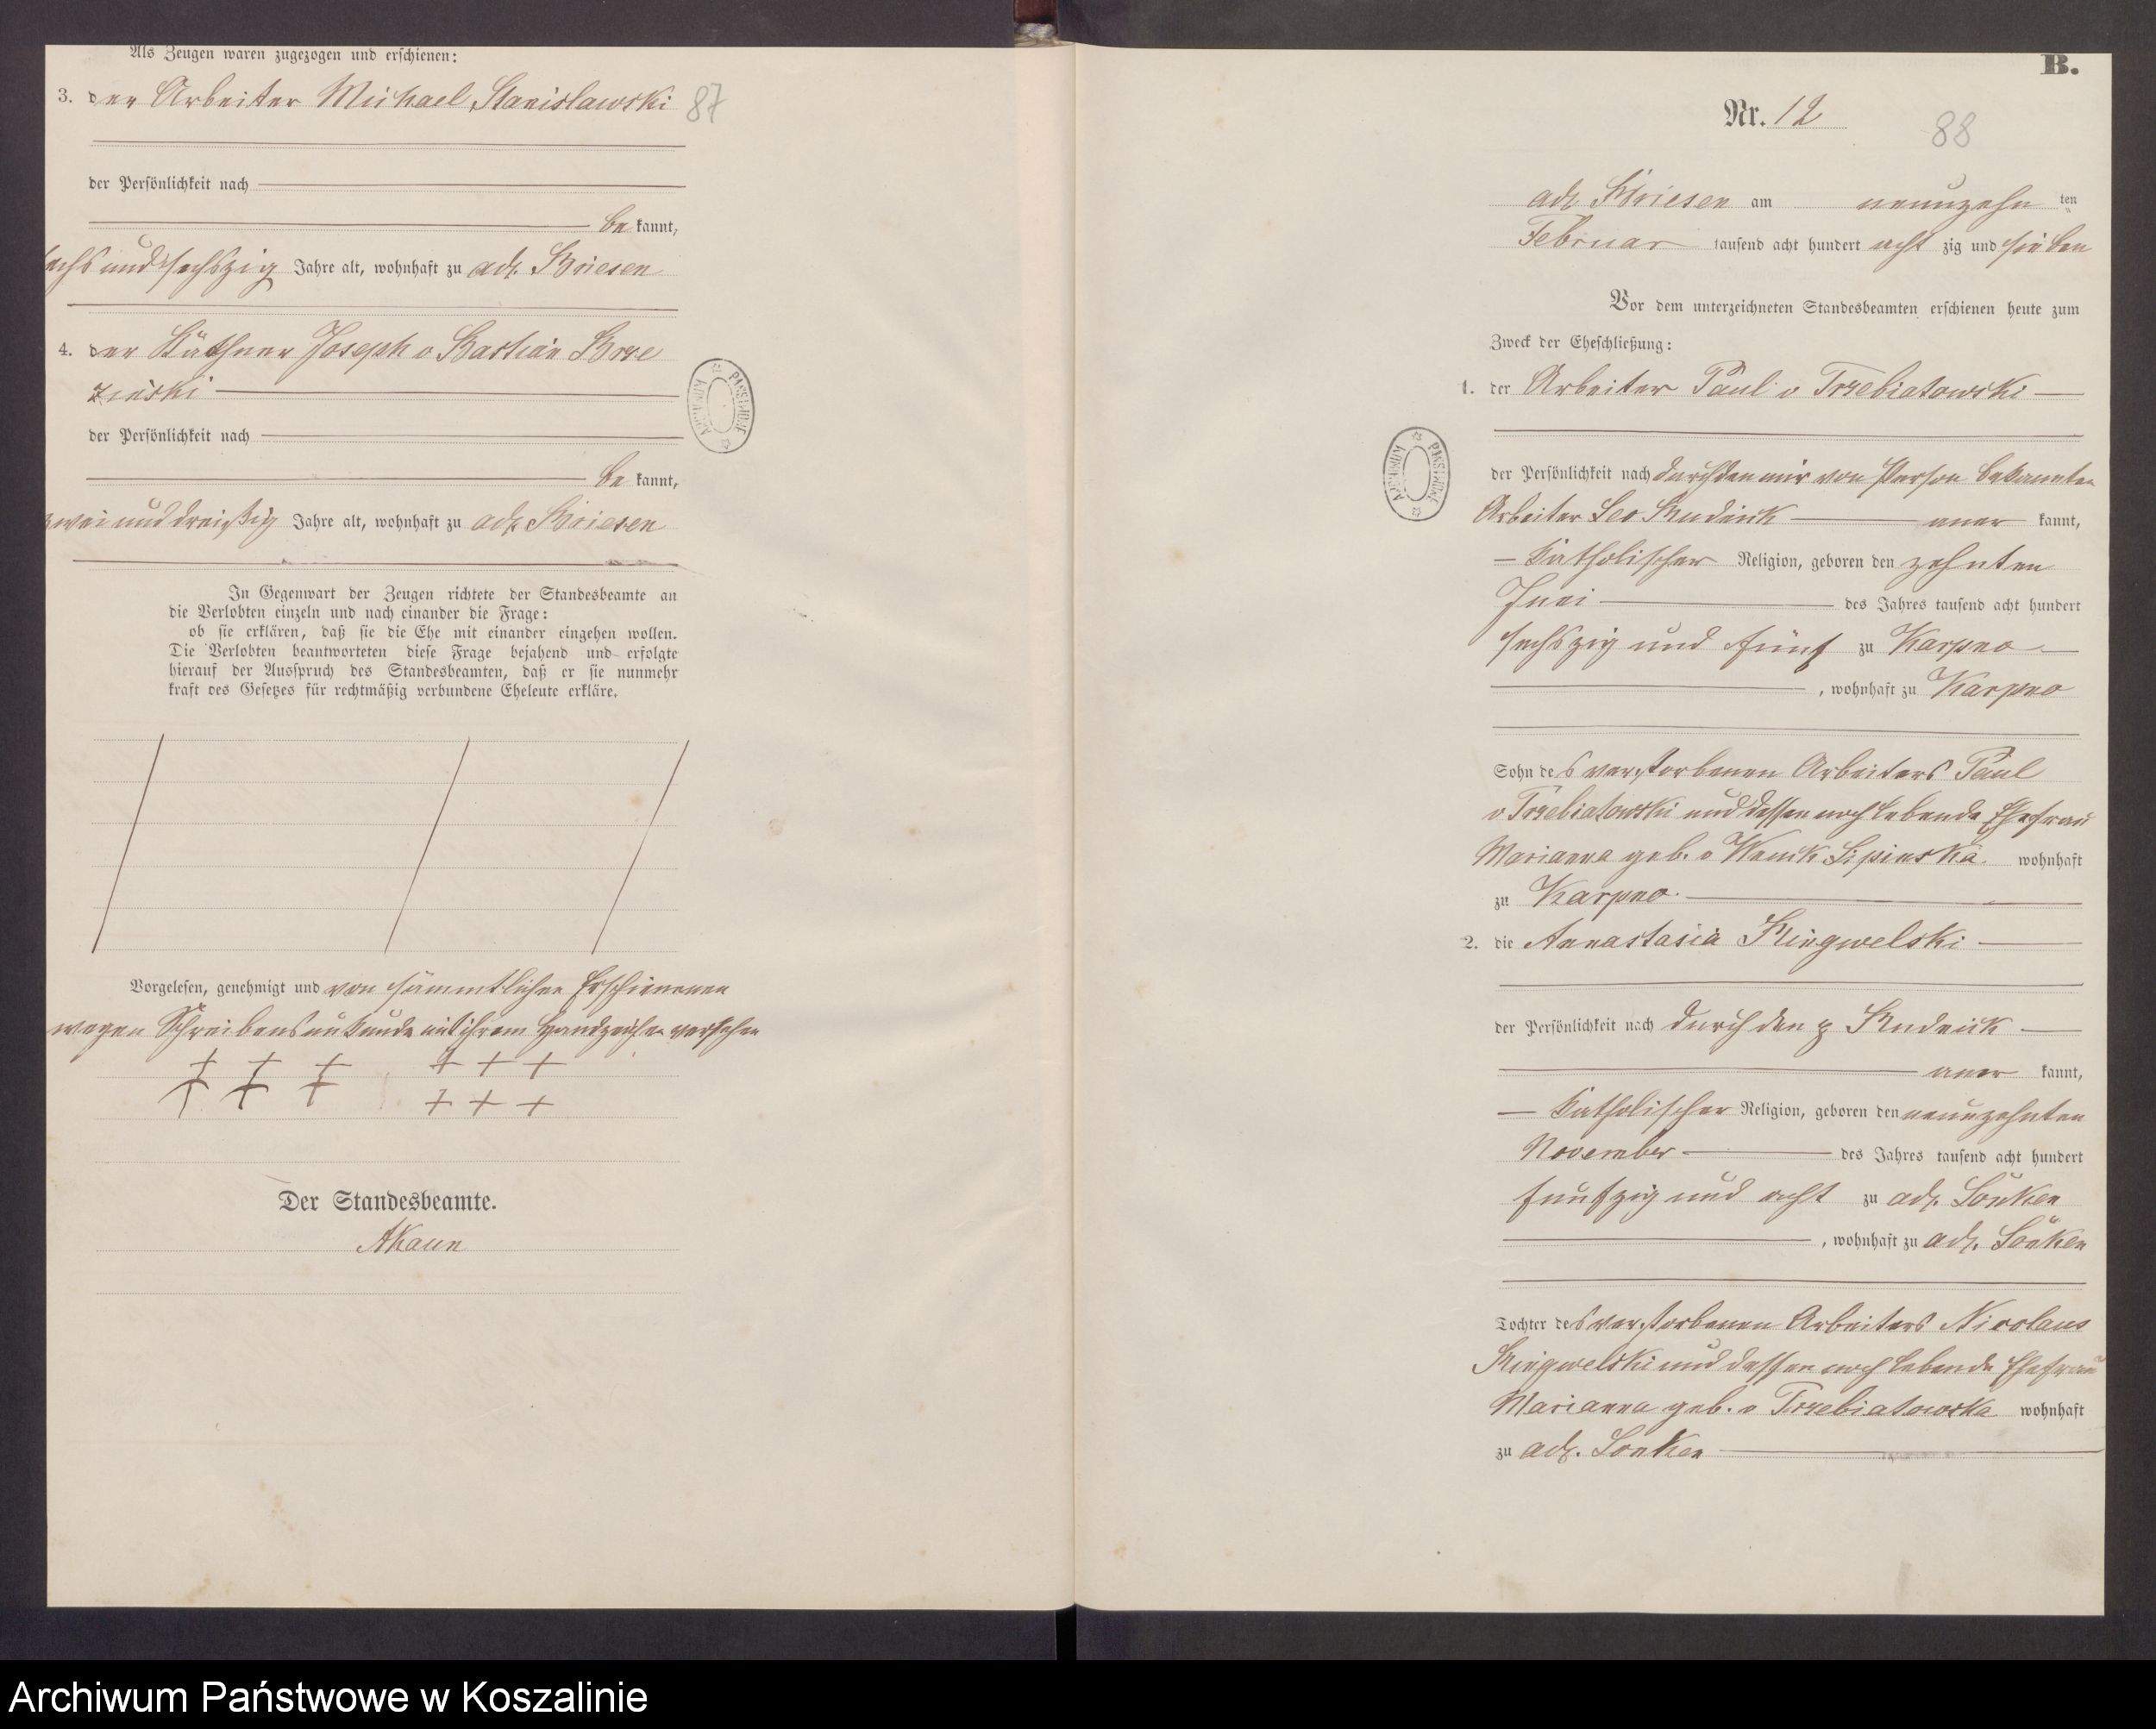 Als Zeugen waren zugezogen und erschienen:
3. der Arbeiter Michael Stanislawski 87
der Persönlichkeit nach
bekannt,
sechs und sechszig Jahre alt, wohnhaft zu adl. Briesen
4. der Käthner Joseph v Bastian Brze
zinski
der Persönlichkeit nach
bekannt,
zwei und dreißig Jahre alt, wohnhaft zu adl. Briesen
In Gegenwart der Zeugen richtete der Standesbeamte an
die Verlobten einzeln und nach einander die Frage:
ob sie erklären, daß sie die Ehe mit einander eingehen wollen.
Die Verlobten beantworteten diese Frage bejahend und erfolgte
hierauf der Ausspruch des Standesbeamten, daß er sie nunmehr
kraft des Gesetzes für rechtmäßig verbundene Eheleute erkläre.
Vorgelesen, genehmigt und von sämmtlichen Erschienenen
wegen Schreibensunkunde mit ihrem Handzeichen versehen
+ + + + + +
+ + + + + +
Der Standesbeamte.
AKaun
ARCHIWUM PAŃSTWOWE
B.
Nr. 12
88
adl. Briesen am neunzehn ten
Februar tausend acht hundert acht zig und sieben
Vor dem unterzeichneten Standesbeamten erschienen heute zum
Zweck der Eheschließung:
1. der Arbeiter Paul v Trzebiatowski
der Persönlichkeit nach durch den mir von Person bekannten
Arbeiter Leo Rudnick aner kannt,
katholischer Religion, geboren den zehnten
des Jahres tausend acht hundert
sechszig und fünf zu Karpno
, wohnhaft zu Karpno
Sohn des verstorbenen Arbeiters Paul
v Trzebiatowski und dessen noch lebende Ehefrau
Marianna geb. v Wnuk Lipinska. wohnhaft
zu Karpno.
2. die Annastasia Ringwelski
der Persönlichkeit nach durch den p Rudnick
aner kannt,
katholischer Religion, geboren den neunzehnten
November des Jahres tausend acht hundert
fünfzig und acht zu adl. Lonken
, wohnhaft zu adl. Lonken
Tochter des verstorbenen Arbeiters Nicolaus
Ringwelski und dessen noch lebende Ehefrau
Marianna geb. v Trzebiatowska wohnhaft
zu adl. Lonken
ARCHIWUM PAŃSTWOWE
Archiwum Państwowe w Koszalinie